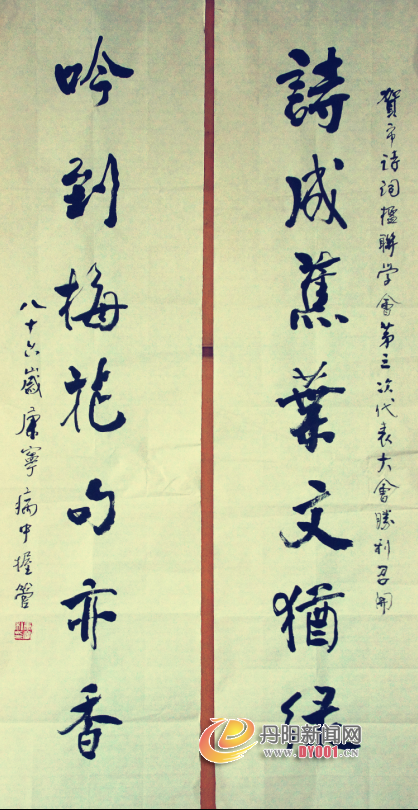 賀市诗词楹聯学會第三次代表大會勝利召開
詩成蕉葉文猶綠
吟到梅花句亦香
八十六歲康寧病中握管
丹阳新闻网
DY001.CN